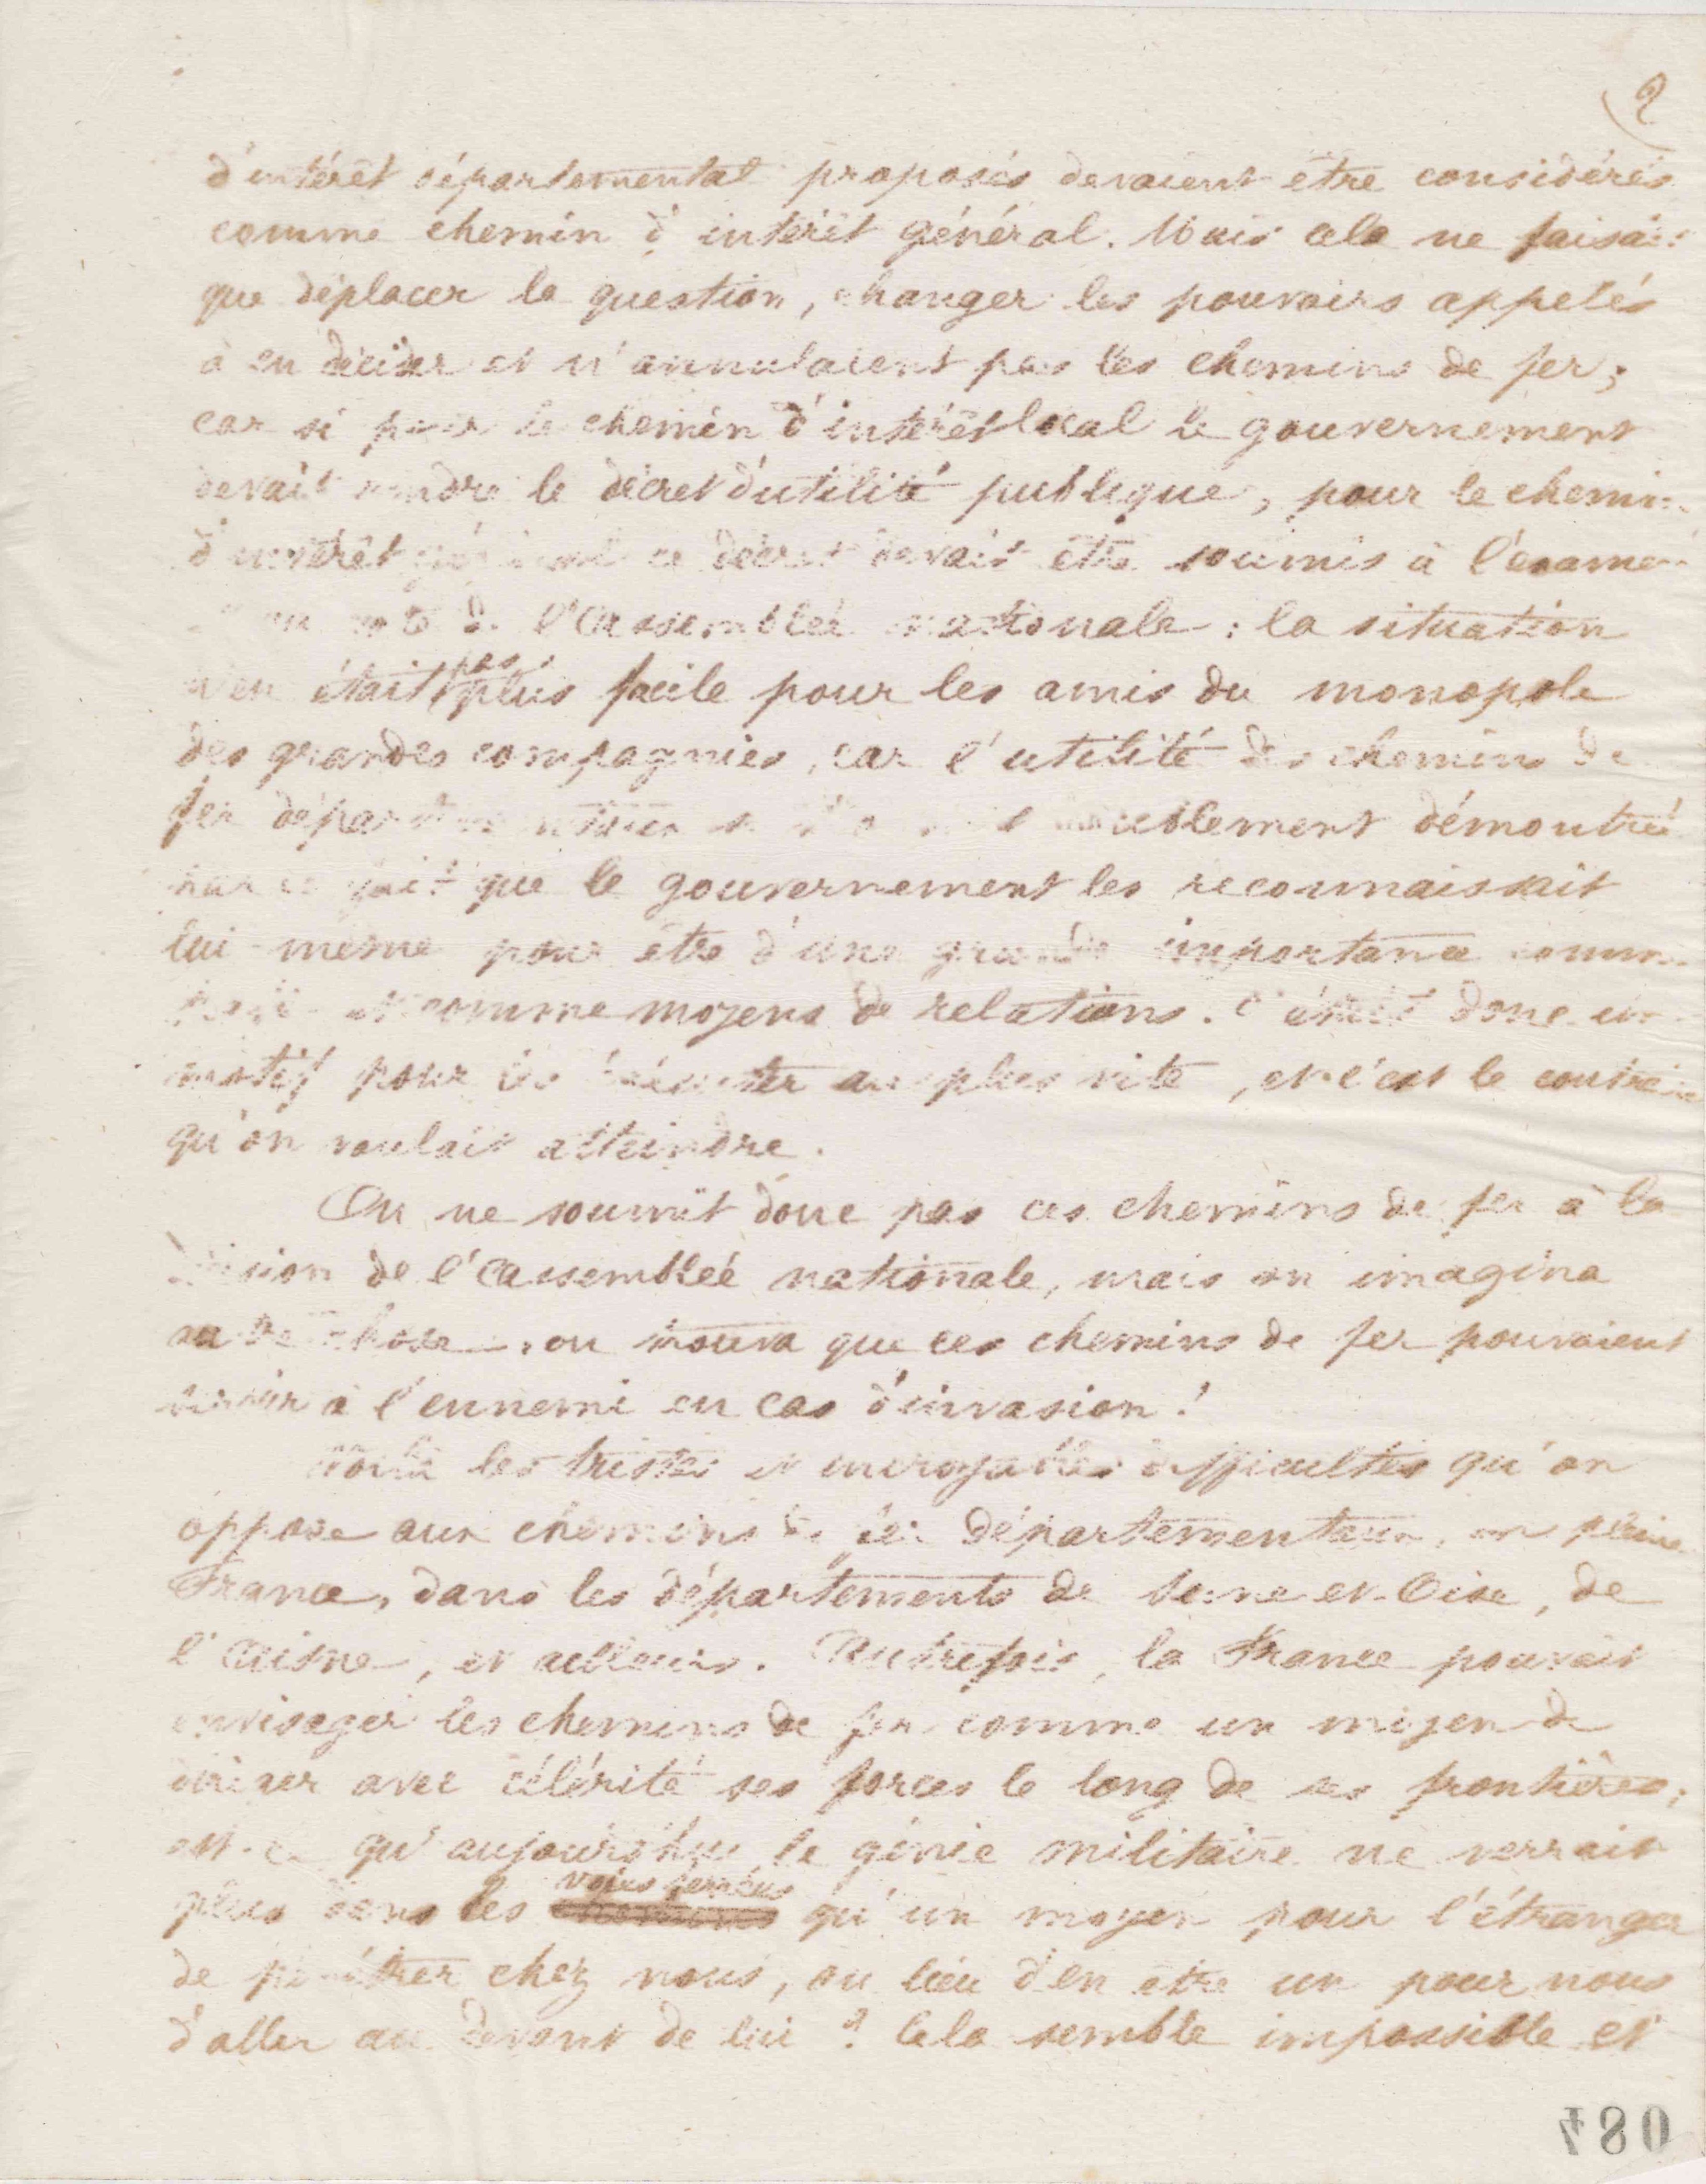 2
d'intérêt départemental proposés devaient être considérés
comme chemin d'intérêt général. Mais cela ne faisait
que déplacer la question, changer les pouvoirs appelés
à en décider et n'annulaient pas les chemins de fer;
car si pour le chemin d'intérêt local le gouvernement
devait rendre le décret d'utilité publique, pour le chemin
d'intérêt général ce décret devait être soumis à l'examen
vote de l'Assemblée nationale : la situation
n'en était pas plus facile pour les amis du monopole
des grandes compagnies, car l'utilité des chemins de
fer départementaux démontrée
par ce fait que le gouvernement les reconnaissait
lui-même pour être d'une grande importance comme
et comme moyens de relations. C'était donc un
motif pour les exécuter au plus vite, et c'est le contraire
qu'on voulait atteindre.
On ne soumit donc pas ces chemins de fer à la
décision de l'Assemblée nationale, mais on imagina
autre chose : on trouva que ces chemins de fer pouvaient
servir à l'ennemi en cas d'invasion !
Voilà les tristes et incroyables difficultés qu'on
oppose aux chemins de fer départementaux, en pleine
France, dans les départements de Seine-et-Oise, de
l'Aisne, et ailleurs. Autrefois, la France pouvait
envisager les chemins de fer comme un moyen de
diriger avec célérité ses forces le long de ses frontières;
est-ce qu'aujourd'hui le génie militaire ne verrait
plus dans les voies ferrées qu'un moyen pour l'étranger
de pénétrer chez nous, au lieu d'en être un pour nous
d'aller au devant de lui ? Cela semble impossible et
084